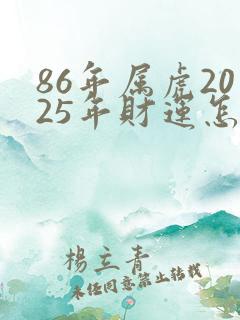 86年属虎20
25年财运怎
杨立青
未经同意禁止转载